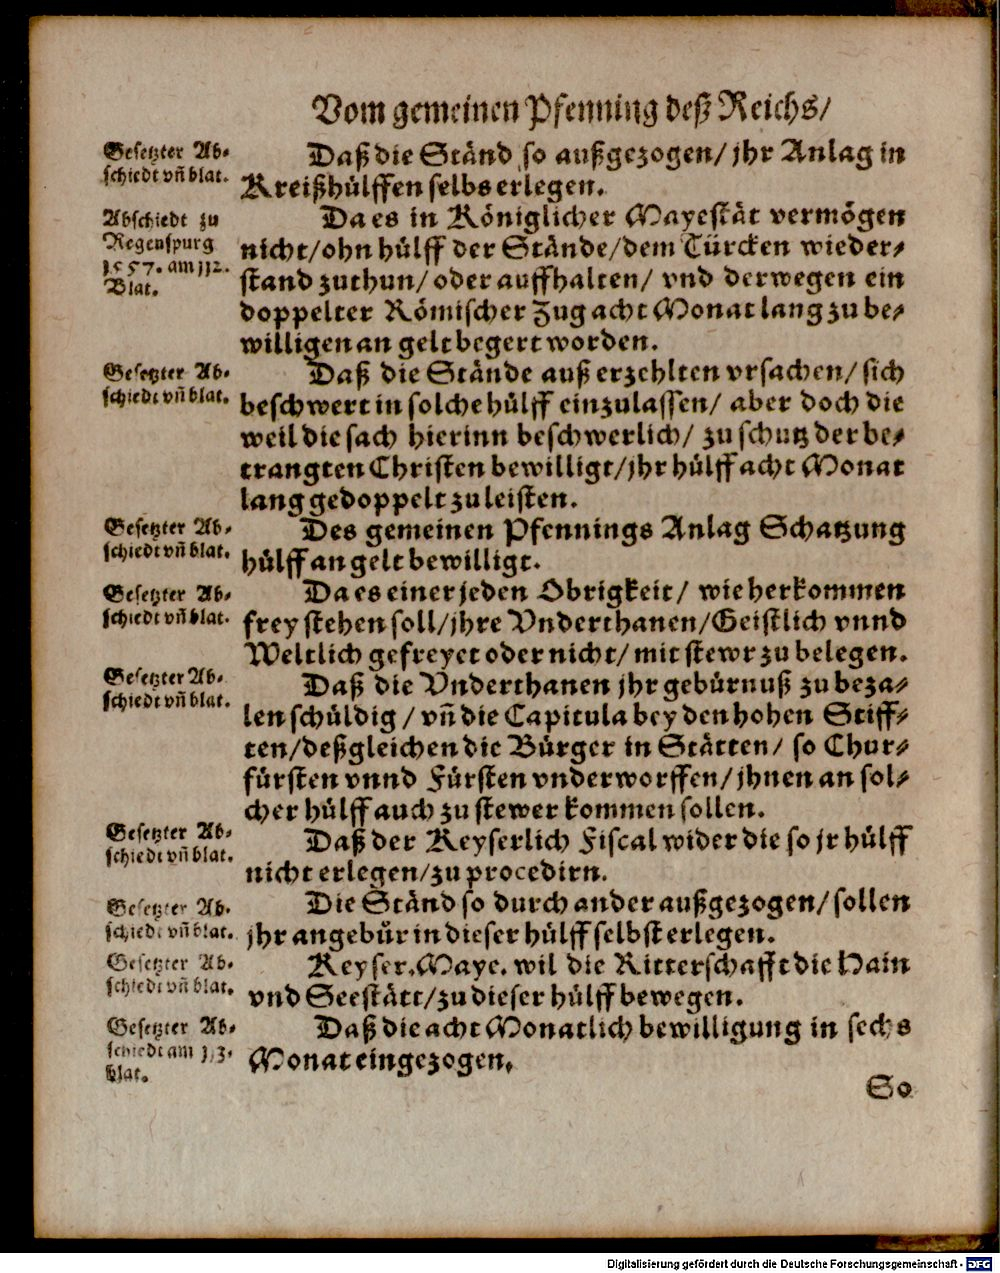 Vom gemeinen Pfenning deß Reichs/
Gesetzter Ab-
schiedt vñ blat.
Daß die Ständ so außgezogen/ jhr Anlag in
Kreißhülffen selbs erlegen.
Abschiedt zu
Regenspurg
1557. am 112.
Blat.
Da es in Königlicher Mayestät vermögen
nicht/ ohn hülff der Stände/ dem Türcken wieder-
stand zuthun/ oder auffhalten/ vnd derwegen ein
doppelter Römischer Zug acht Monat lang zu be-
willigen an gelt begert worden.
Gesetzter Ab-
schiedt vñ blat.
Daß die Stände auß erzehlten vrsachen/ sich
beschwert in solche hülff einzulassen/ aber doch die
weil die sach hierinn beschwerlich/ zu schutz der be-
trangten Christen bewilligt/ jhr hülff acht Monat
lang gedoppelt zu leisten.
Gesetzter Ab-
schiedt vñ blat.
Des gemeinen Pfennings Anlag Schatzung
hülff an gelt bewilligt.
Gesetzter Ab-
schiedt vñ blat.
Da es einer jeden Obrigkeit/ wie herkommen
frey stehen soll/ jhre Vnderthanen/ Geistlich vnnd
Weltlich gefreyet oder nicht/ mit stewr zu belegen.
Gesetzter Ab-
schiedt vñ blat.
Daß die Vnderthanen jhr gebürnuß zu beza-
len schüldig/ vñ die Capitula bey den hohen Stiff-
ten/ deßgleichen die Bürger in Stätten/ so Chur-
fürsten vnnd Fürsten vnderworffen/ jhnen an sol-
cher hülff auch zu stewer kommen sollen.
Gesetzter Ab-
schiedt vñ blat.
Daß der Keyserlich Fiscal wider die so jr hülff
nicht erlegen/ zu procedirn.
Gesetzter Ab-
schiedt vñ blat.
Die Ständ so durch ander außgezogen/ sollen
jhr angebür in dieser hülff selbst erlegen.
Gesetzter Ab-
schiedt vñ blat.
Keyser. Maye. wil die Ritterschafft die Hain
vnd Seestätt/ zu dieser hülff bewegen.
Gesetzter Ab-
schiedt am 113.
blat.
Daß die acht Monatlich bewilligung in sechs
Monat eingezogen.
So
Digitalisierung gefördert durch die Deutsche Forschungsgemeinschaft - DFG